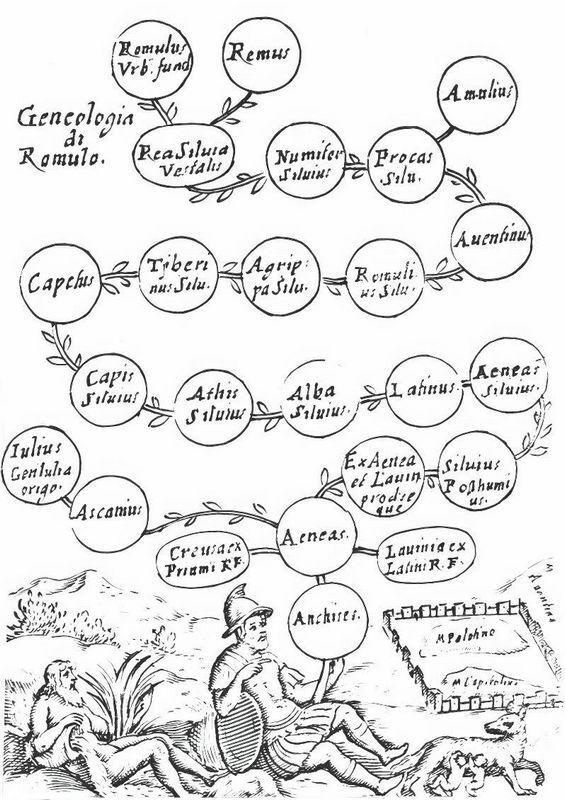 Romulus
Vrb. fund
Remus
Geneologia
di
Romulo.
Rea Siluia
Vestalis
Numitor
Siluius
Procas
Silu.
Amulius
Auentinus
Romuli
us Silu.
Agrip:
pa Silu.
Tyberi
nus Silu.
Capetus
Capis
Siluius
Athis
Siluius
Alba
Siluius.
Latinus.
Aeneas
Siluius.
Siluius
Posthumi
us.
Ex Aenea
et Lauin
prodse
que
Iulius
Gent Iulia
origo.
Ascanius
Aeneas.
Creusa ex
Priami R.F.
Lauinia ex
Latini R.F.
Anchises.
M Palatino
M Capitolino
M Auentino